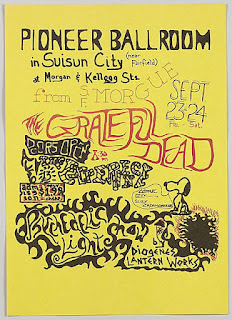 PIONEER BALLROOM
in Suisun City (near Fairfield)
at Morgan & Kellogg Sts.
from S.F. MORGUE
SEPT
23-24
Fri. Sat.
THE GRATEFUL DEAD
DOORS OPEN
Psychedelic
Light Show
by
DIOGENES
LANTERN WORKS